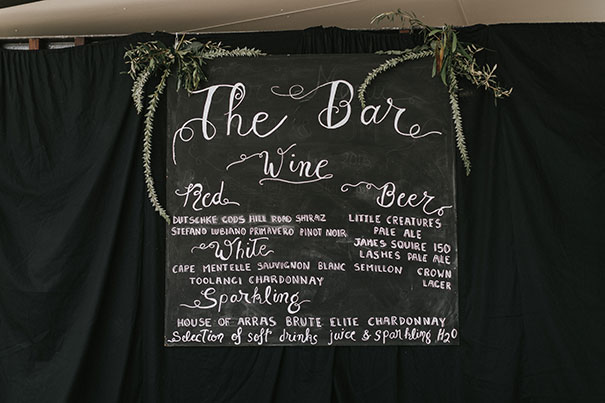 The Bar
Wine
Red
DUTSCHKE GODS HILL ROAD SHIRAZ
STEFANO LUBIANO PRIMAVERO PINOT NOIR
White
CAPE MENTELLE SAUVIGNON BLANC SEMILLON
TOOLANGI CHARDONNAY
Sparkling
HOUSE OF ARRAS BRUTE ELITE CHARDONNAY
Beer
LITTLE CREATURES
PALE ALE
JAMES SQUIRE 150
LASHES PALE ALE
CROWN
LAGER
Selection of soft drinks juice & sparkling H2O